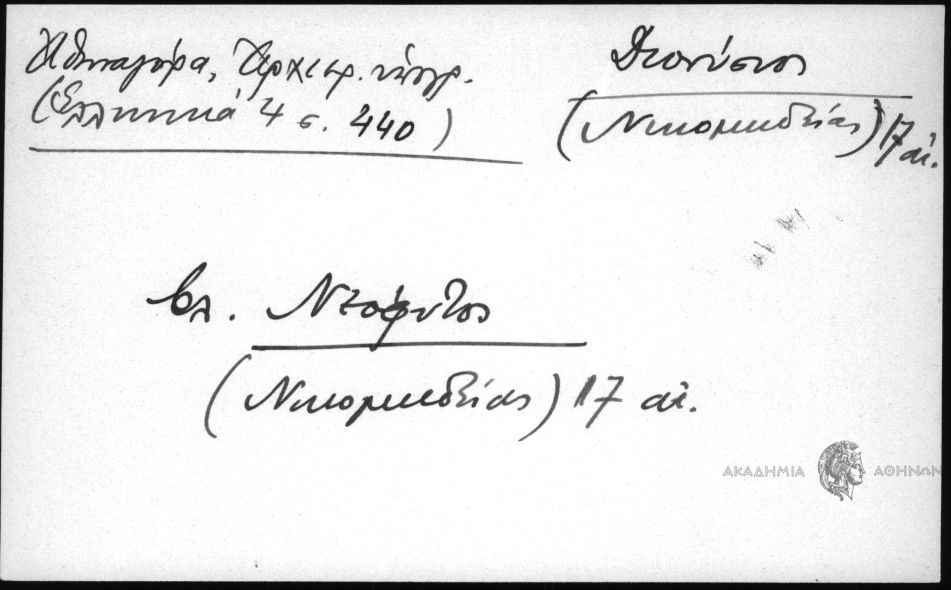 Ἀθηναγόρα, Ἀρχιερ. ὑπογρ.
(Ἑλληνικά 4 σ. 440)
Διονύσιος
(Νικομηδείας) 17 αἰ.
βλ. Νεόφυτος
(Νικομηδείας) 17 αἰ.
ΑΚΑΔΗΜΙΑ ΑΘΗΝΩΝ